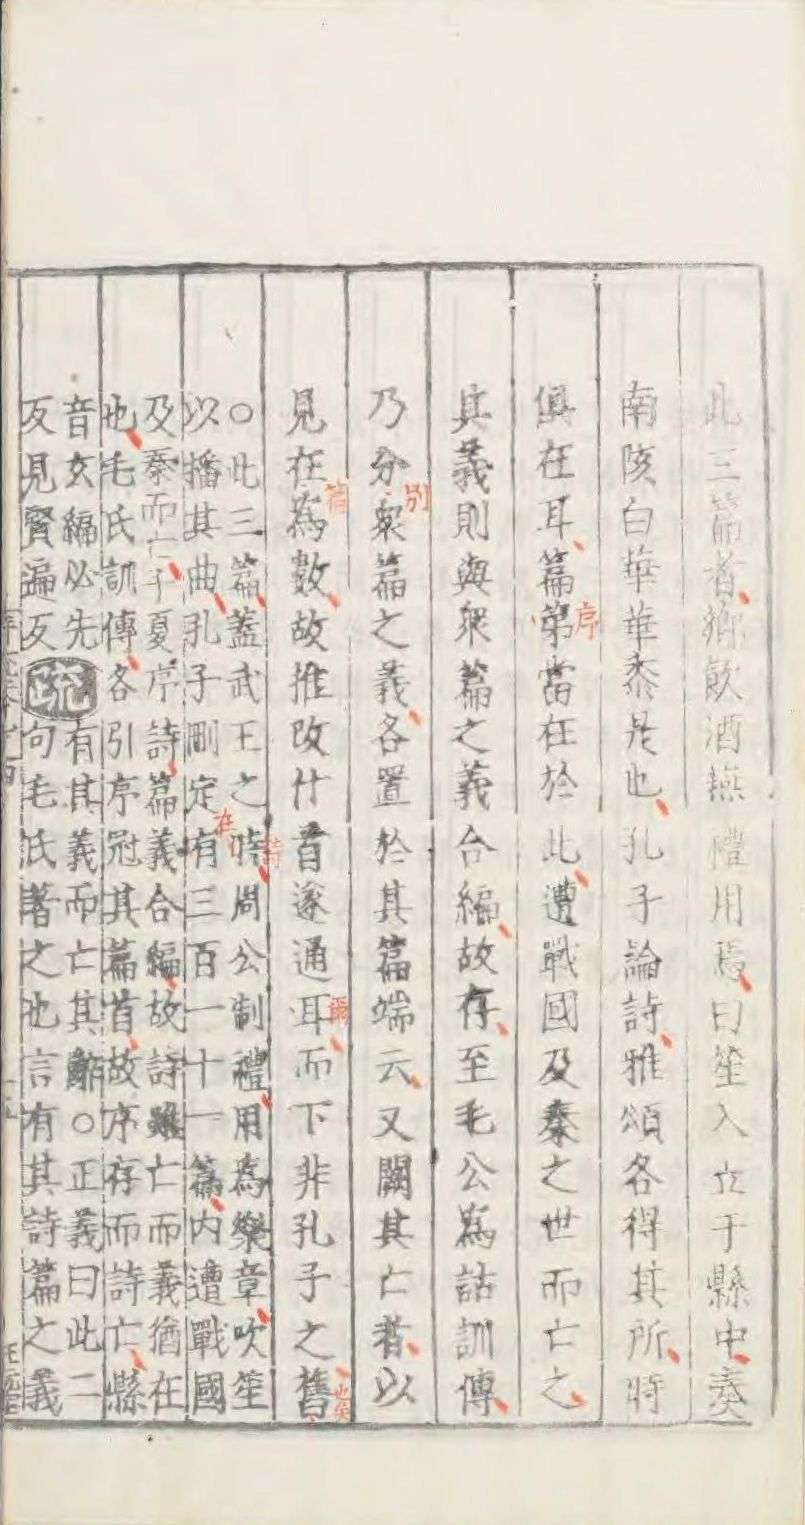 此三篇者鄉飲酒燕禮用焉曰笙入立于縣中奏
南陔白華華黍是也孔子論詩雅頌各得其所時
俱在耳篇第當在於此遭戰國及秦之世而亡之
序
其義則與眾篇之義合編故存至毛公為詁訓傳
乃分眾篇之義各置於其篇端云又闕其亡者以
別
見在為數故推改什首遂通耳而下非孔子之舊
篇
爾
也矣
○此三篇蓋武王之時周公制禮用為樂章吹笙
以播其曲孔子刪定有三百一十一篇內遭戰國
在
及秦而亡子夏序詩篇義合編故詩雖亡而義猶在
也毛氏訓傳各引序冠其篇首故序存而詩亡縣
音玄編必先
反見賢遍反
疏
有其義而亡其辭○正義曰此二
句毛氏著之也言有其詩篇之義